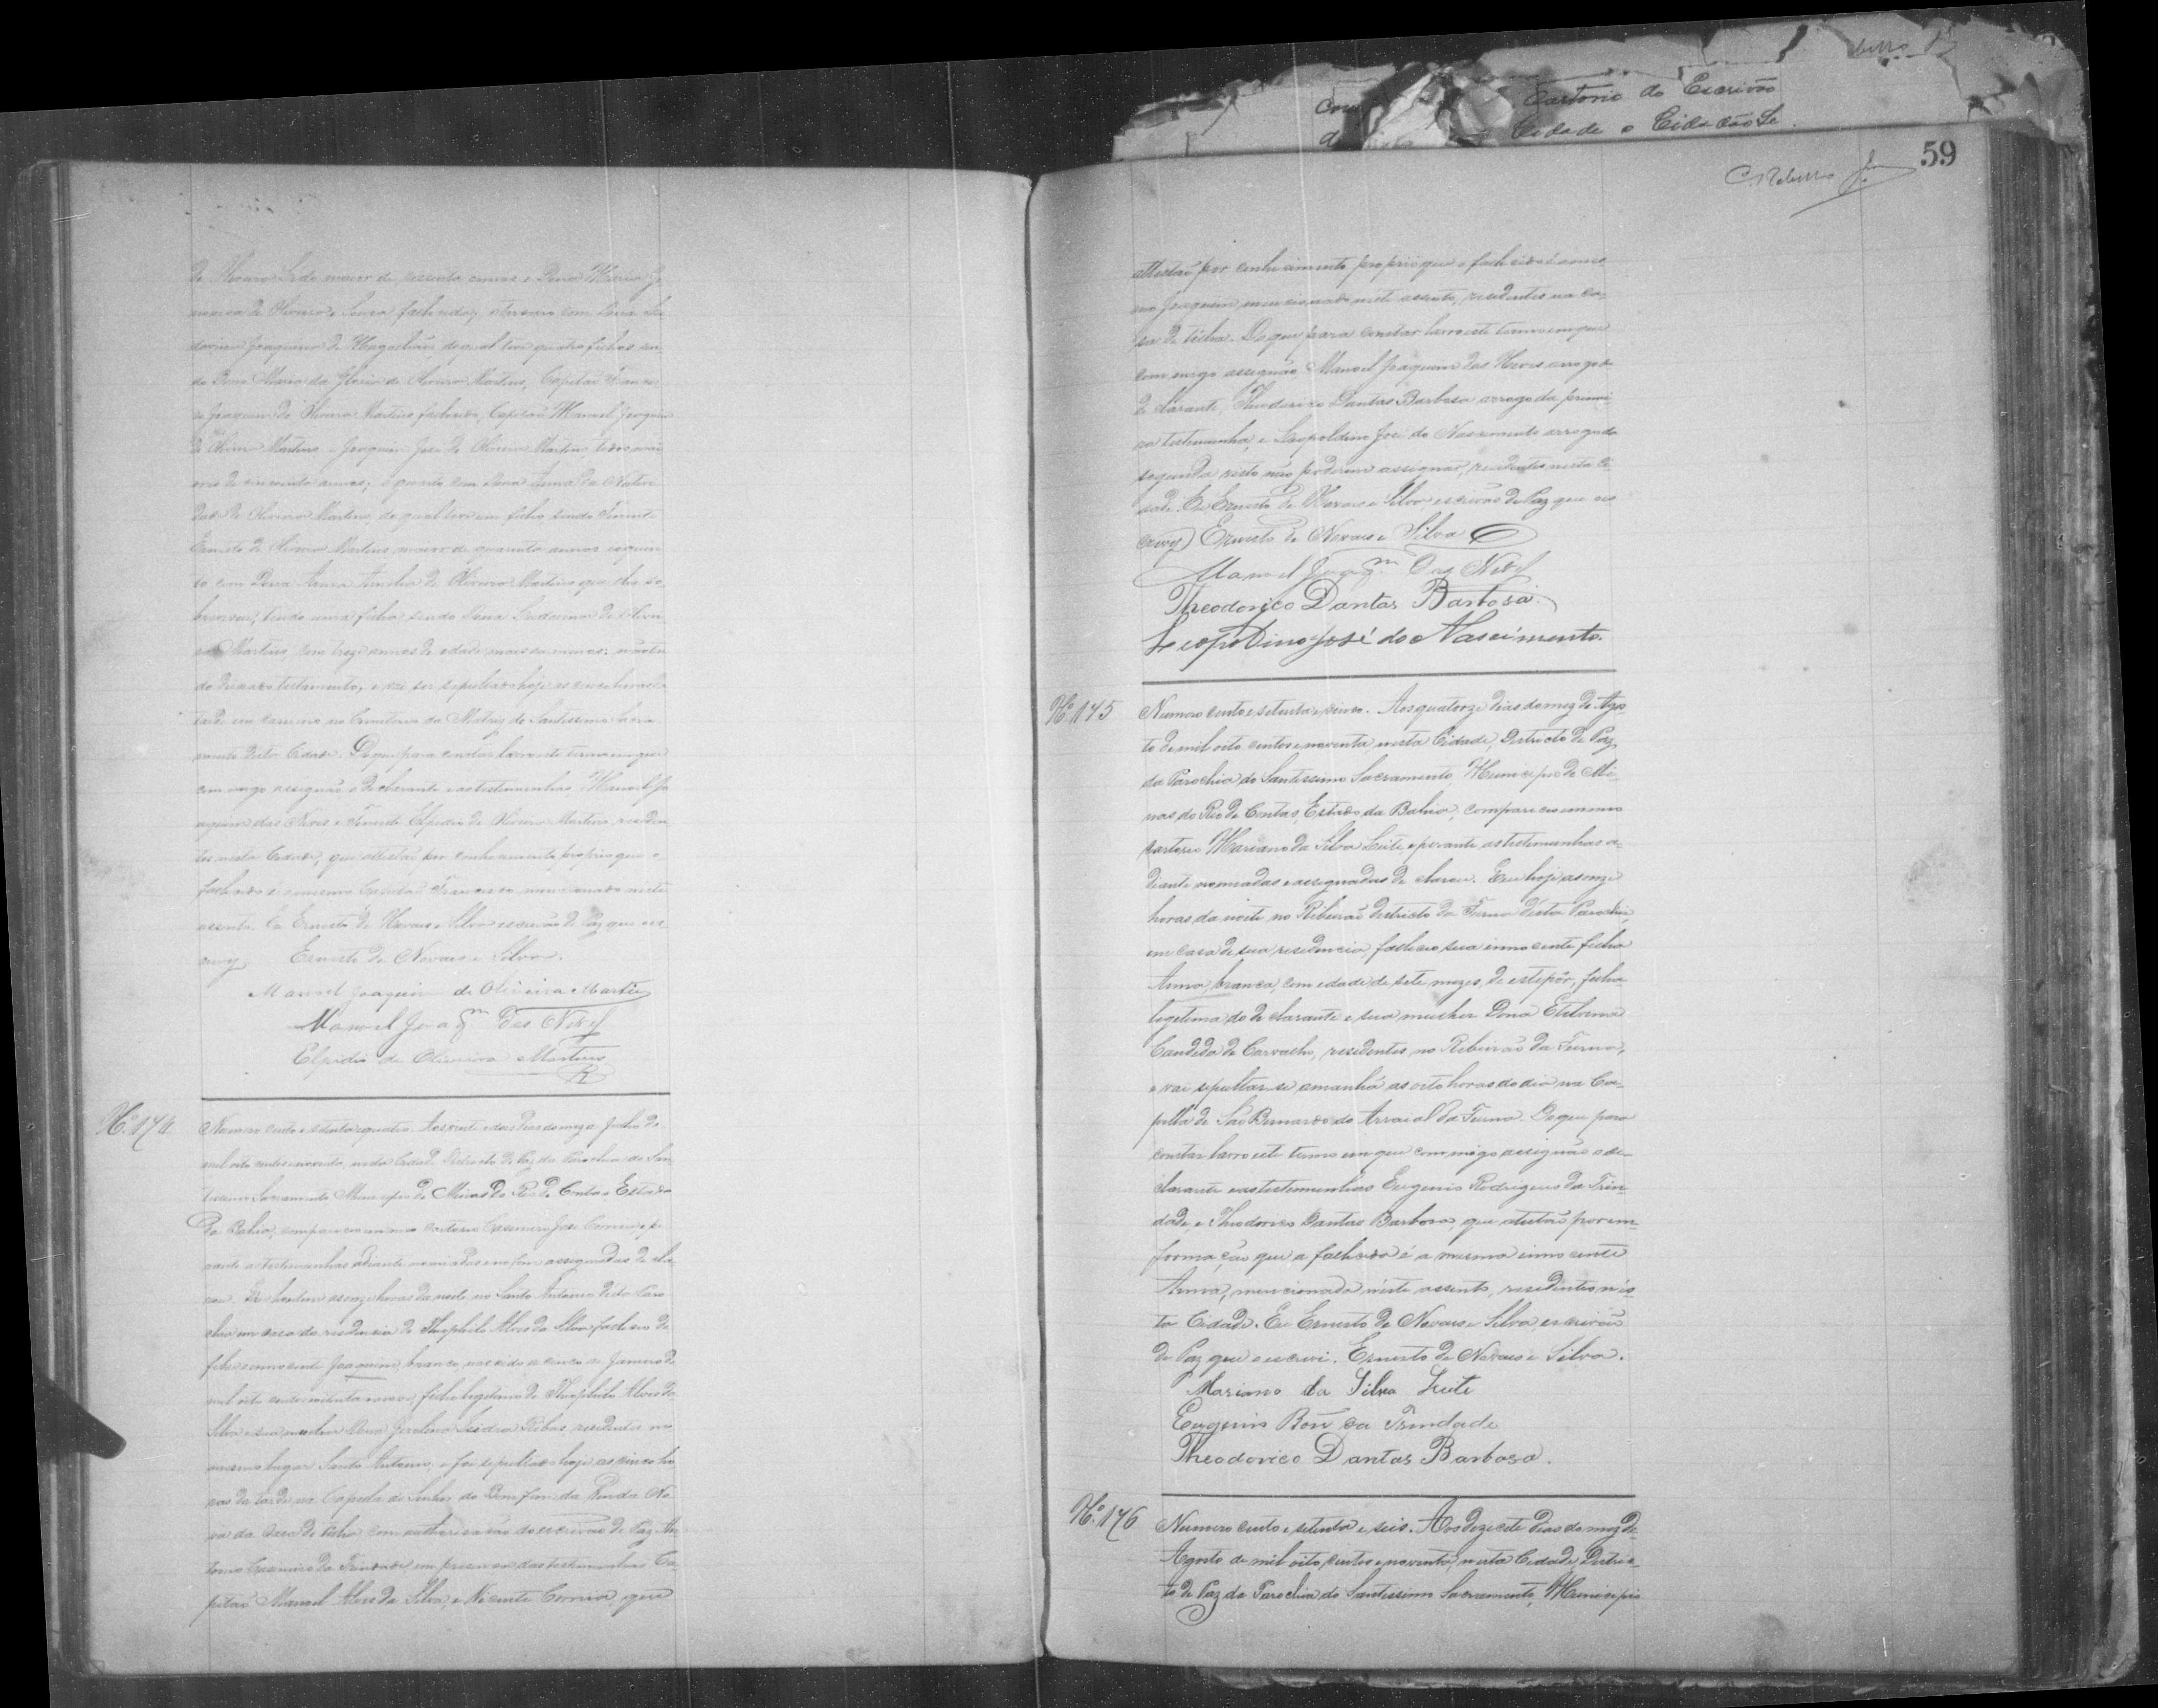 Cartorio do Escrivão
Cidade o Cidadão Se
59
C. Rebello
de Oliveira maior de sessenta annos e Dona Maria Je
de Oliveira e Souza fallecida; terceiro com Dona
Joaquina de Magalhães de qual teve quatro filhos sen
do Dona Maria da Gloria de Oliveira Martins, Capitão Francis
co Joaquim de Oliveira Martins fallecido, Capitão Manoel Joaquim
de Oliveira Martins e Joaquim José de Oliveira Martins, todos mai
ores de cincoenta annos; e quarto com Dona Anna da Nativi
dade de Oliveira Martins, do qual teve um filho sendo Tenente
Ernesto de Oliveira Martins, maior de quarenta annos e quin
to com Dona Anna Amelia de Oliveira Martins que lhe so
breviveu, tendo uma filha sendo Dona de Olivei
ra Martins, com treze annos de edade mais ou menos: não ten
do deixado testamento, e vai ser sepultado hoje as cinco horas da
tarde em carneiro no Cemiterio da Matriz do Santissimo Sacra
mento desta Cidade. Do que para constar lavro este termo em que
com migo assignão o declarante e as testemunhas, Manoel Jo
aquim das Neves e Tenente Elpidio de Oliveira Martins, residen
tes nesta Cidade, que attestão por conhecimento proprio que o
fallecido é o mesmo Capitão Francisco mencionado neste
assento. Eu Ernesto de Novaes e Silva escrivão de Paz que es
crevy Ernesto de Novaes e Silva.
Manoel Joaquim de Oliveira Martins
Manoel Joaqm das Neves
Elpidio de Oliveira Martins
No. 174
Numero cento e setenta e quatro. Aos vinte e dous dias do mez de Julho de
mil oito centos e noventa, nesta Cidade, Districto de Paz da Parochia do San
tissimo Sacramento Municipio de Minas do Rio de Contas Estado
da Bahia, compareceu em meu cartorio Casemiro José Correia e pe
rante as testemunhas adiante nomiadas e no fim assignadas decla
rou. Que hontem as onze horas da noite, no Santo Antonio desta Paro
chia em casa da residencia de Theophilo Alves da Silva falleceu de
febre o innocente Joaquim, branco, nascido a cinco de Janeiro de
mil oito centos e oitenta e nove, filho legitimo de Theophilo Alves da
Silva e sua mulher Dona Jesolina Ribas, residentes no
mesmo lugar Santo Antonio, e foi sepultado hoje as cinco ho
ras da tarde na Capella do Senhor do Bom fim da No
va da Casa de Telha com authorisação do escrivão de Paz
Casemiro da Trindade em presença das testemunhas Ca
pitão Manoel Alves da Silva, e Vicente Correia, que
attestão por conhecimento proprio que o fallecido é o mes
mo Joaquim, mencionado neste assento, residentes na Ca
sa de telha. Do que para constar lavro este termo em que
com migo assignão, Manoel Joaquim das Neves a rogo do
declarante, Theodorico Dantas Barbosa a rogo da primei
ra testemunha, e Leopoldino José do Nascimento a rogo da
segunda visto não poderem assignar, residentes nesta Ci
dade. Eu Ernesto de Novaes e Silva, escrivão de Paz que es
crevy) Ernesto de Novaes e Silva
Manoel Joaqm das Neves
Theodorico Dantas Barbosa.
Leopoldino José do Nascimento.
No. 175
Numero cento e setenta e cinco. Aos quatorze dias do mez de Agos
to de mil oito centos e noventa, nesta Cidade, Districto de Paz
da Parochia do Santissimo Sacramento, Municipio de Mi
nas do Rio de Contas, Estado da Bahia, compareceu em meu
cartorio Mariano da Silva Leite e perante as testemunhas a-
diante nomiadas e assignadas declarou. Que hoje as onze
horas da noite no Ribeirão districto da Furna desta Parochia,
em casa de sua residencia, falleceu sua innocente filha
Anna, branca, com edade de sete mezes, de estopôr, filha
legitima do declarante e sua mulher Dona Etelvina
Candida de Carvalho, residentes no Ribeirão da Furna,
e vai sepultar-se amanhã as oito horas do dia na Ca-
pella de São Bernardo do Arraial da Furna. Do que para
constar lavro este termo em que com migo assignão o de-
clarante e as testemunhas Eugenio Rodrigues da Trin-
dade, e Theodorico Dantas Barbosa, que atestão por in-
formação que a fallecida é a mesma innocente
Anna, mencionada neste assento, residentes nes-
ta Cidade. Eu Ernesto de Novaes e Silva, escrivão
de Paz que o escrevi. Ernesto de Novaes e Silva.
Mariano da Silva Leite
Eugenio Roiz da Trindade
Theodorico Dantas Barbosa.
No. 176
Numero cento e setenta e seis. Aos dezecete dias do mez de
Agosto de mil oito centos e noventa, nesta Cidade Distric
to de Paz da Parochia do Santissimo Sacramento, Municipio